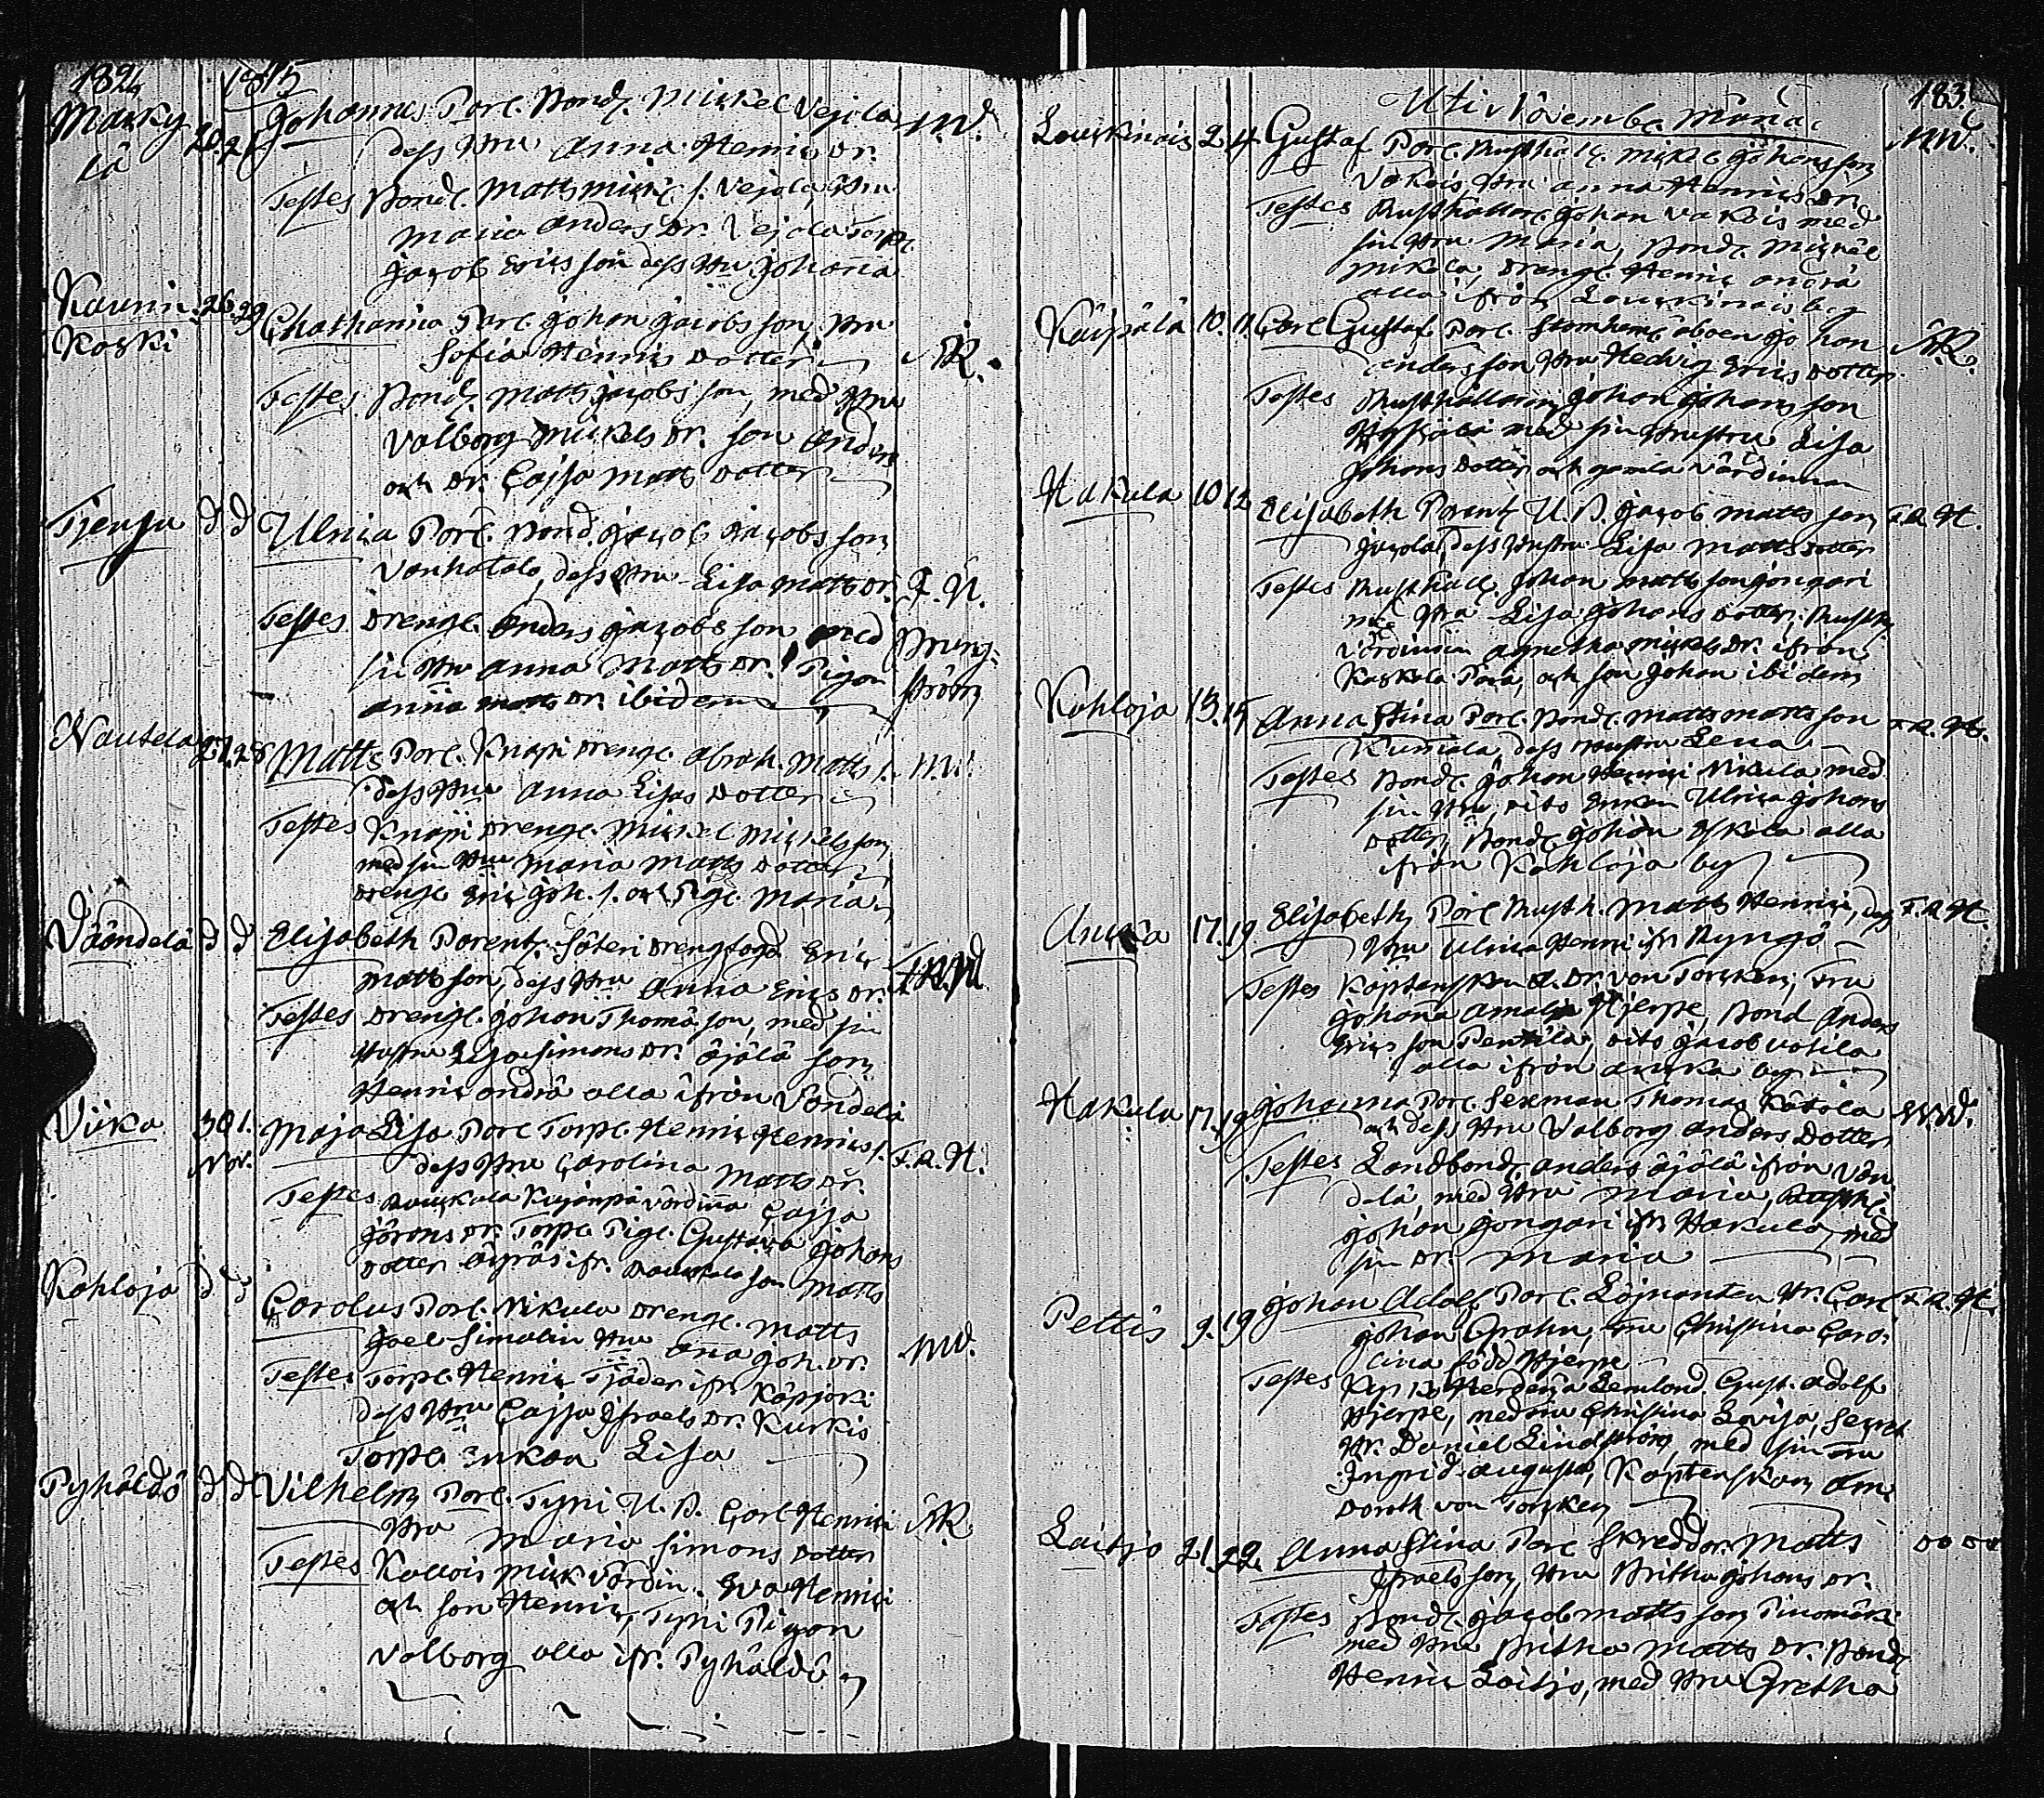 182. 1815
Marky
lä 20. 21 Johannes Par. Bond. Mickel Vejola M.W.
dess Hru Anna Henrics Dr.
Testes Bond. Matts Mick. s. Vejola, Hru
Maria Anders Dr. Vejola Torp.
Jacob Ericsson dess Hu Johana
Kaunis
Koski 26. 29 Chatharina Par. Johan Jacobsson, Hru
Sofia Henrics Dotter N.R.
Testes Bond. Matts Jacobsson, med Hru
Valborg Mickels Dr. son Anders
och Dr. Cajsa Matts Dotter
Tjensu d d Ulrica Par. Bond. Jacob Jacobs son
Vanhatalo, dess Hru Lisa Matts Dr.
Testes Drenge. Anders Jacobs son med
sin Hru Anna Matts Dr. Pigan
Anna Matts Dr. ibidem
Nautela 27. 28 Matts Par. Knapi Drenge. Abrah. Matts s. M.W.
dess Hru Anna Lisas Dotter
Testes Knapi Drenge. Mickel Mickelsson
med sin Hru Maria Matts Dotter
Drenge Eric Joh. s. och Pige. Maria
Väändelä d d Elisabeth Parent. Säteri Eric
Mattsson, dess Hru Anna Erics Dr.
Testes Drenge. Johan Thomasson, med sin
Hustru Lisa Simons Dr. Äjälä son
Henric andra alla ifrån Vändelä
Viika 30 1.
Nov. Maja Lisa Par. Torp. Henric Henrics s. F.A.H.
dess Hru Carolina Matts Dr.
Testes värdina Cajsa
Görans Dr. Torp. Pige. Gustava Johans
Dotter Äyräs ifr. son Matts
Kahloja d d Carolus Par. Nikula Drenge. Matts
Joel Simalin Hru Ana Joh. Dr. M.W.
Testes Torp. Henric Tjäder ifr. Käpjoki
dess Hru Cajsa Israels Dr. Kurkis
Torp. Enkan Lisa
Pyhäldö d d Vilhelm Par. Tyni U. B. Carl Henrici N.R.
Hru Maria Simons Dotter
Testes Kallois Mick värdin. Eva Henrici
och son Henric, Tyni Pigan
Valborg alla ifr. Pyhäldö
183.
Uti Novembr. Månad
Louckinais 2. 4 Gustaf Par. Rusthall. Mick. Johansson M.W.
Vakois, Hru Anna Henrics Dr.
Testes Rusthallar. Johan Vakois med
sin Hru Maria, Bond. Mickel
Mikola, Drenge. Henric andra
alla ifrån Louckinais by
Käispälä 10. 11. Carl Gustaf Par. Johan N.R.
Andersson Hru Hedvig Erics Dotter
Testes Rusthallaren Johan Johansson
med sin Hustru Lisa
Johans Dotter och gamla värdinnan
Hakula 10 12 Elisabeth Parent. U. B. Jacob Mattsson F.A.H.
dess Hustru Lisa Matts Dotter
Testes Rusthall. Johan Mattsson Jongari
med Hru Lisa Johans Dotter, Rusth.
värdinnan Agnetha Mickels Dr. ifrån
Kaskala Para, och son Johan ibidem
Kahloja 13. 15 Anna Stina Par. Bond. Matts Mattsson F.A.H.
Kumiala, dess Hustru Lena
Testes Bond. Johan Henrici Nikula med
sin Hru, dito Enkan Ulrica Johans
Dotter, Bond. Johan Iskala alla
ifrån Kahloja by
Auvka 17. 19 Elisabeth Par. Rusth. Matts Henrici, dess F.A.H.
Hru Ulrica Henrici ifr. Ryngö
Testes Kaptenskan A. Dr. von Torcken, Fru
Johana Amalia Hjerpe, Bond Anders
Ericsson Pentila, dito Jacob Votila
alla ifrån Auvka by
Hakula 17. 19 Johanna Par. Sexman Thomas Kätölä M.W.
och dess Hru Valborg Anders Dotter
Testes Landbond. Anders Äjälä ifrån Vän
delä, med Hru Maria, Rusth.
Johan Jongari ifr. Hakula, med
sin Dr. Maria
Pettis 9. 19 Johan Adolf Par. Löjnanten Hr. Carl F.A.H.
Johan Grahn, Fru Christina Caro:
lina född Hjerpe
Testes Gust. Adolf
Hjerpe, med Fru Christina Lovisa, Secret
Hr. Daniel Lindström, med sin Fru
Ingrid Augusta, Kaptenskan Ann
Doroth von Torcken
Laitjo 21. 22. Anna Stina Par. Skreddar. Matts
Israelsson, Hru Britha Johans Dr.
Testes Bond. Jacob Mattsson Pinomäki
med Hru Britha Matts Dr. Bond.
Henric Laitjo, med Hru Gretha